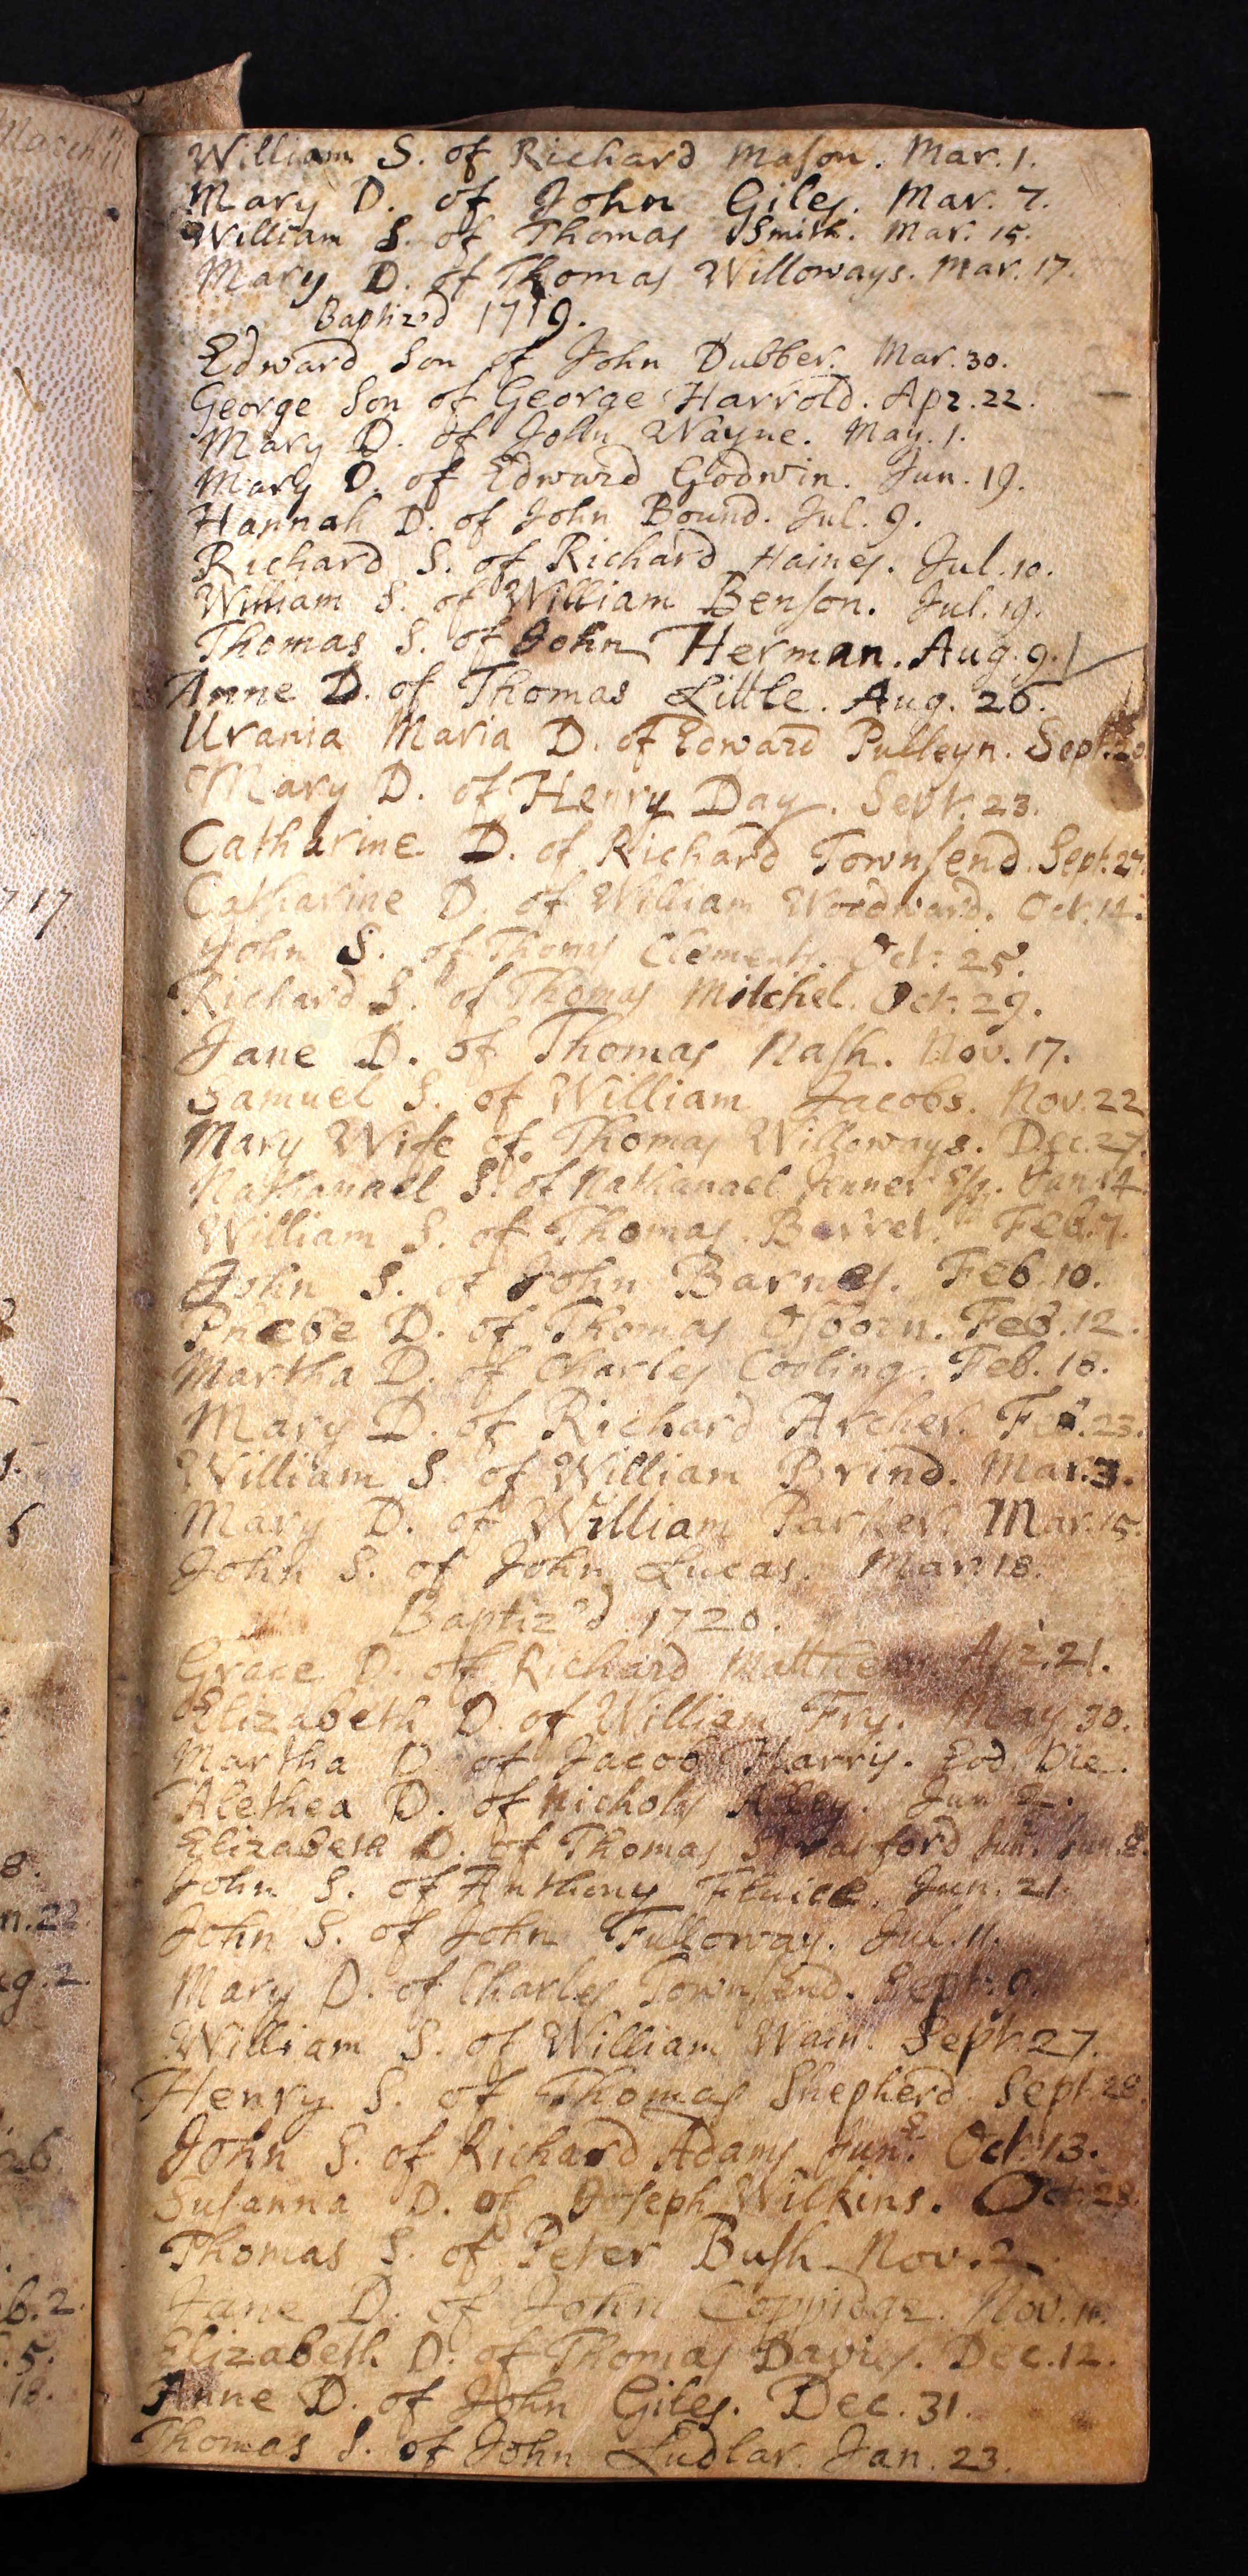 William S. of Richard Mason. Mar. 1.
Mary D. of John Giles. Mar. 7.
William S. of Thomas Smith. Mar. 15.
Mary D. of Thomas Willoways. Mar. 17.
Baptiz'd 1719.
Edward Son of John Dubber. Mar. 30.
George Son of George Harrold. Apr. 22.
Mary D. of John Wayne. May. 1.
Mary D. of Edward Godwin. Jun. 19.
Hannah D. of John Bound. Jul. 9.
Richard S. of Richard Haines. Jul. 10.
William S. of William Benson. Jul. 19.
Thomas S. of John Herman. Aug. 9.
Anne D. of Thomas Little. Aug. 26.
Urania Maria D. of Edward Pulleyn. Sept. 20
Mary D. of Henry Day. Sept. 23.
Catharine D. of Richard Townsend. Sept. 27.
Catharine D. of William Woodward. Oct. 14.
John S. of Thomas Clements. Oct. 25.
Richard S. of Thomas Mitchel. Oct. 29.
Jane D. of Thomas Nash. Nov. 17.
Samuel S. of William Jacobs. Nov. 22
Mary Wife of Thomas Willoways. Dec. 27.
Nathanael S. of Nathanael Jenner Esq. Jan. 14
William S. of Thomas Feb. 7.
John S. of John Barnes. Feb. 10.
Phebe D. of Thomas Osborn. Feb. 12.
Martha D. of Charles Cooling. Feb. 18.
Mary D. of Richard Archer. Feb. 23.
William S. of William Brind. Mar. 3.
Mary D. of William Parker. Mar. 15.
John S. of John Lucas. Mar. 18.
Baptiz'd 1720.
Grace D. of Richard Matthews. Apr. 21.
Elizabeth D. of William Fry. May 30.
Martha D. of Jacob Harris. Eod. Die.
Alethea D. of Nicholas Jun. 2.
Elizabeth D. of Thomas Stratford Jun. Jun. 8.
John S. of Anthony Jun. 21.
John S. of John Fulloway. Jul. 11.
Mary D. of Charles Townsend. Sept. 9.
William S. of William Wain. Sept. 27.
Henry S. of Thomas Shepherd. Sept. 28.
John S. of Richard Adams Junr. Oct. 13.
Susanna D. of Joseph Wilkins. Oct. 28.
Thomas S. of Peter Bush. Nov. 2.
Jane D. of John Coppidge. Nov.
Elizabeth D. of Thomas Davies. Dec. 12.
Anne D. of John Giles. Dec. 31.
Thomas S. of John Ludlar. Jan. 23.